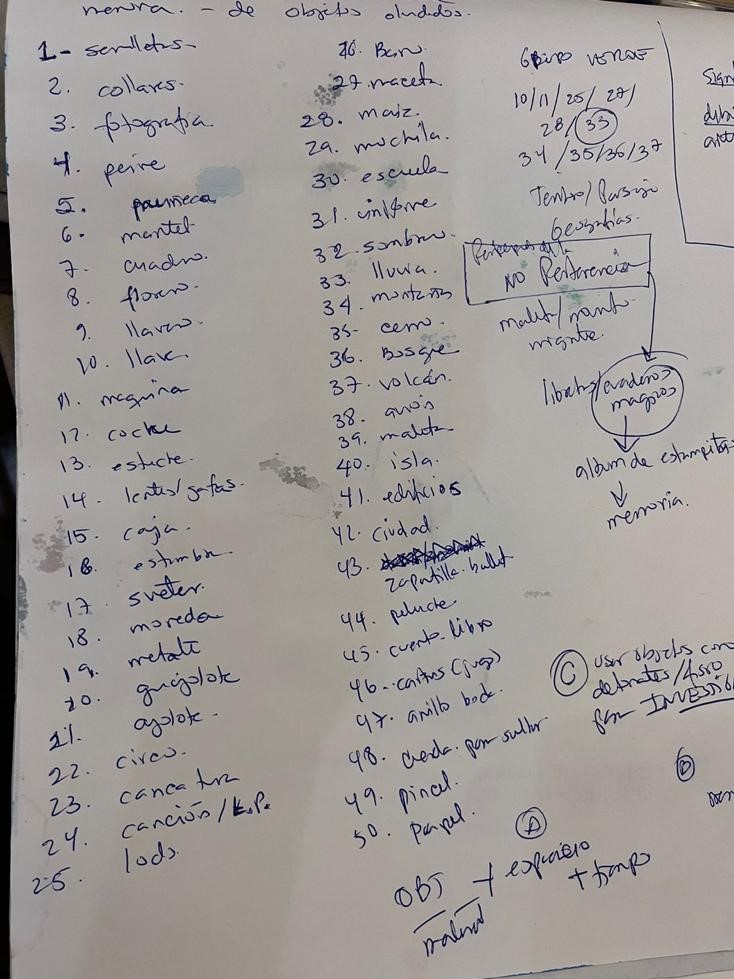 memoria. - de objetos olvidados.
1- servilletas
2. collares.
3. fotografia
4. peine
5. muñeca
6. mantel
7. cuadro.
8. florero.
9. llavero.
10. llave.
11. maquina
12. coche
13. estuche.
14. lentes/gafas.
15. caja.
16. estambre
17. sueter.
18. moneda
19. metate
20. guajolote
21. ajolote.
22. circo.
23. caricatura
24. canción/
25. lodo.
26. Barro.
27. maceta
28. maiz.
29. mochila.
30. escuela
31. uniforme
32. sombrero
33. lluvia.
34. montañas
35. cerro.
36. Bosque
37. volcán.
38. avión
39. maleta
40. isla.
41. edificios
42. ciudad.
43.
zapatilla ballet
44. peluche
45. cuento libro
46. cartas (juego)
47. anillo boda.
48. cuerda para saltar
49. pincel.
50. Papel.
GRUPO VERDE
10/11/25/27/
28/33
34/35/36/37
Geografias.
NO Pertenencia
migrante.
libretas/cuadernos
magicos
album de estampitas
memoria.
C usar objetos como
detonantes/
para
B
A
OBJ + espacio
+ tiempo
material